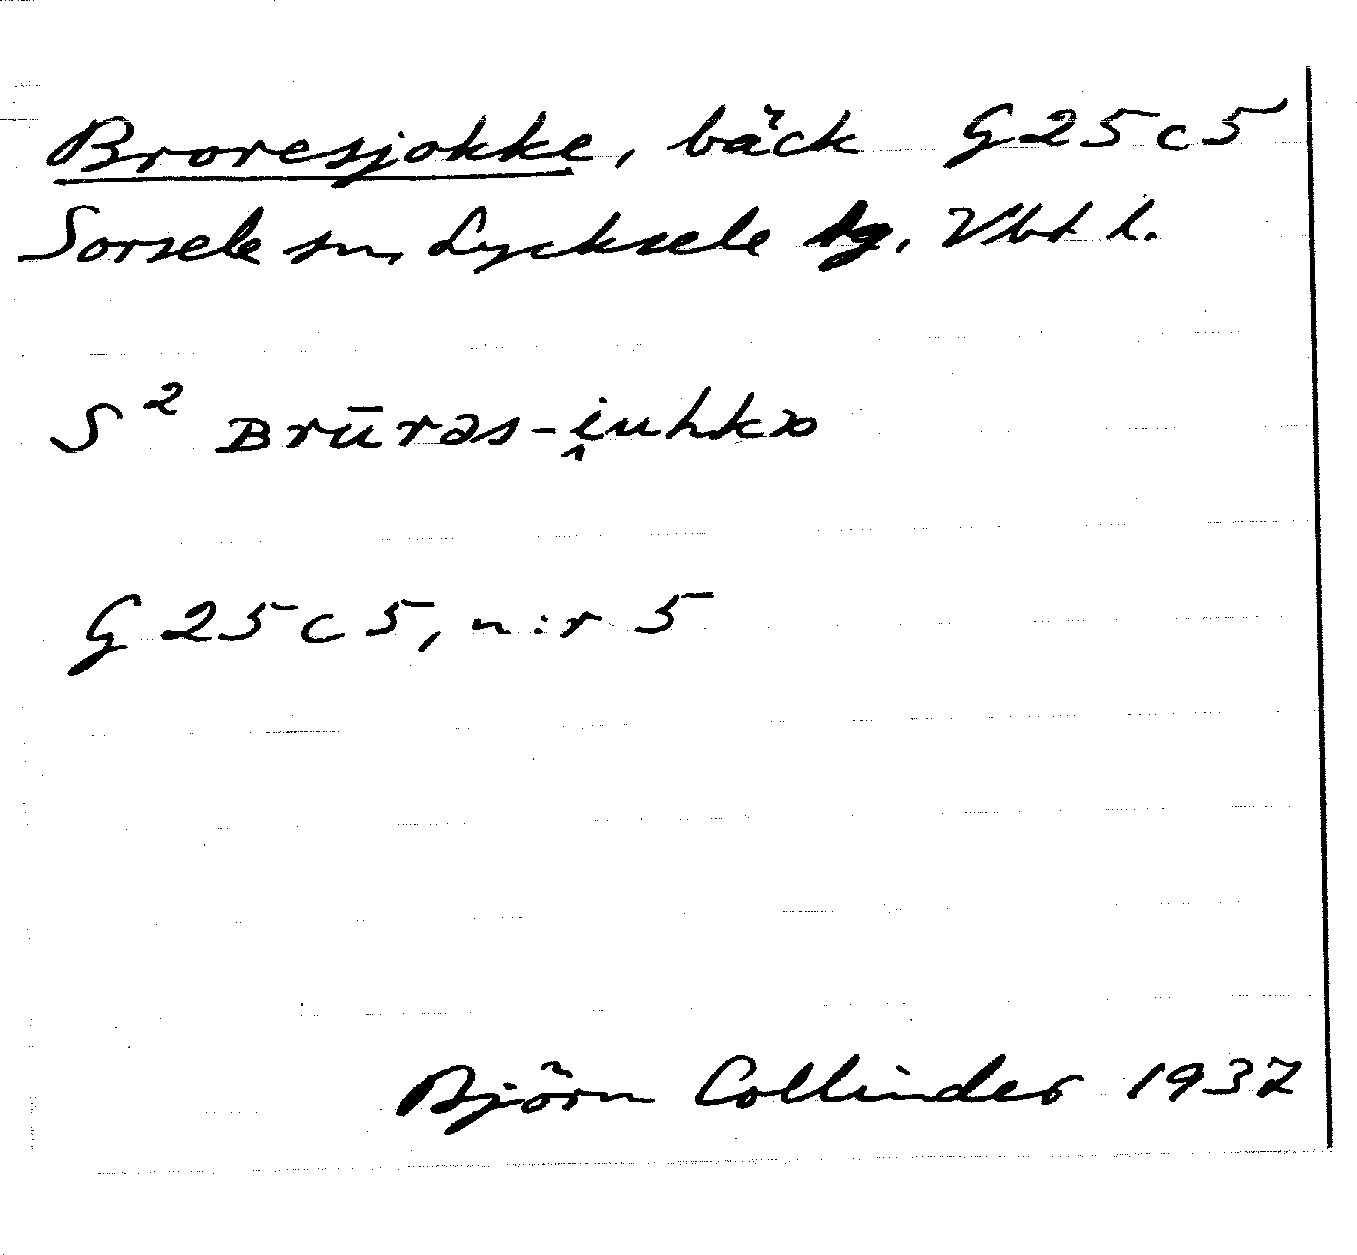 Broresjokke, bäck G25c5
Sorsele sn, Lycksele lg. Vbt l.
S² Brūrəs-i̯uhkə
G 25c5, n:r 5
Björn Collinder 1937